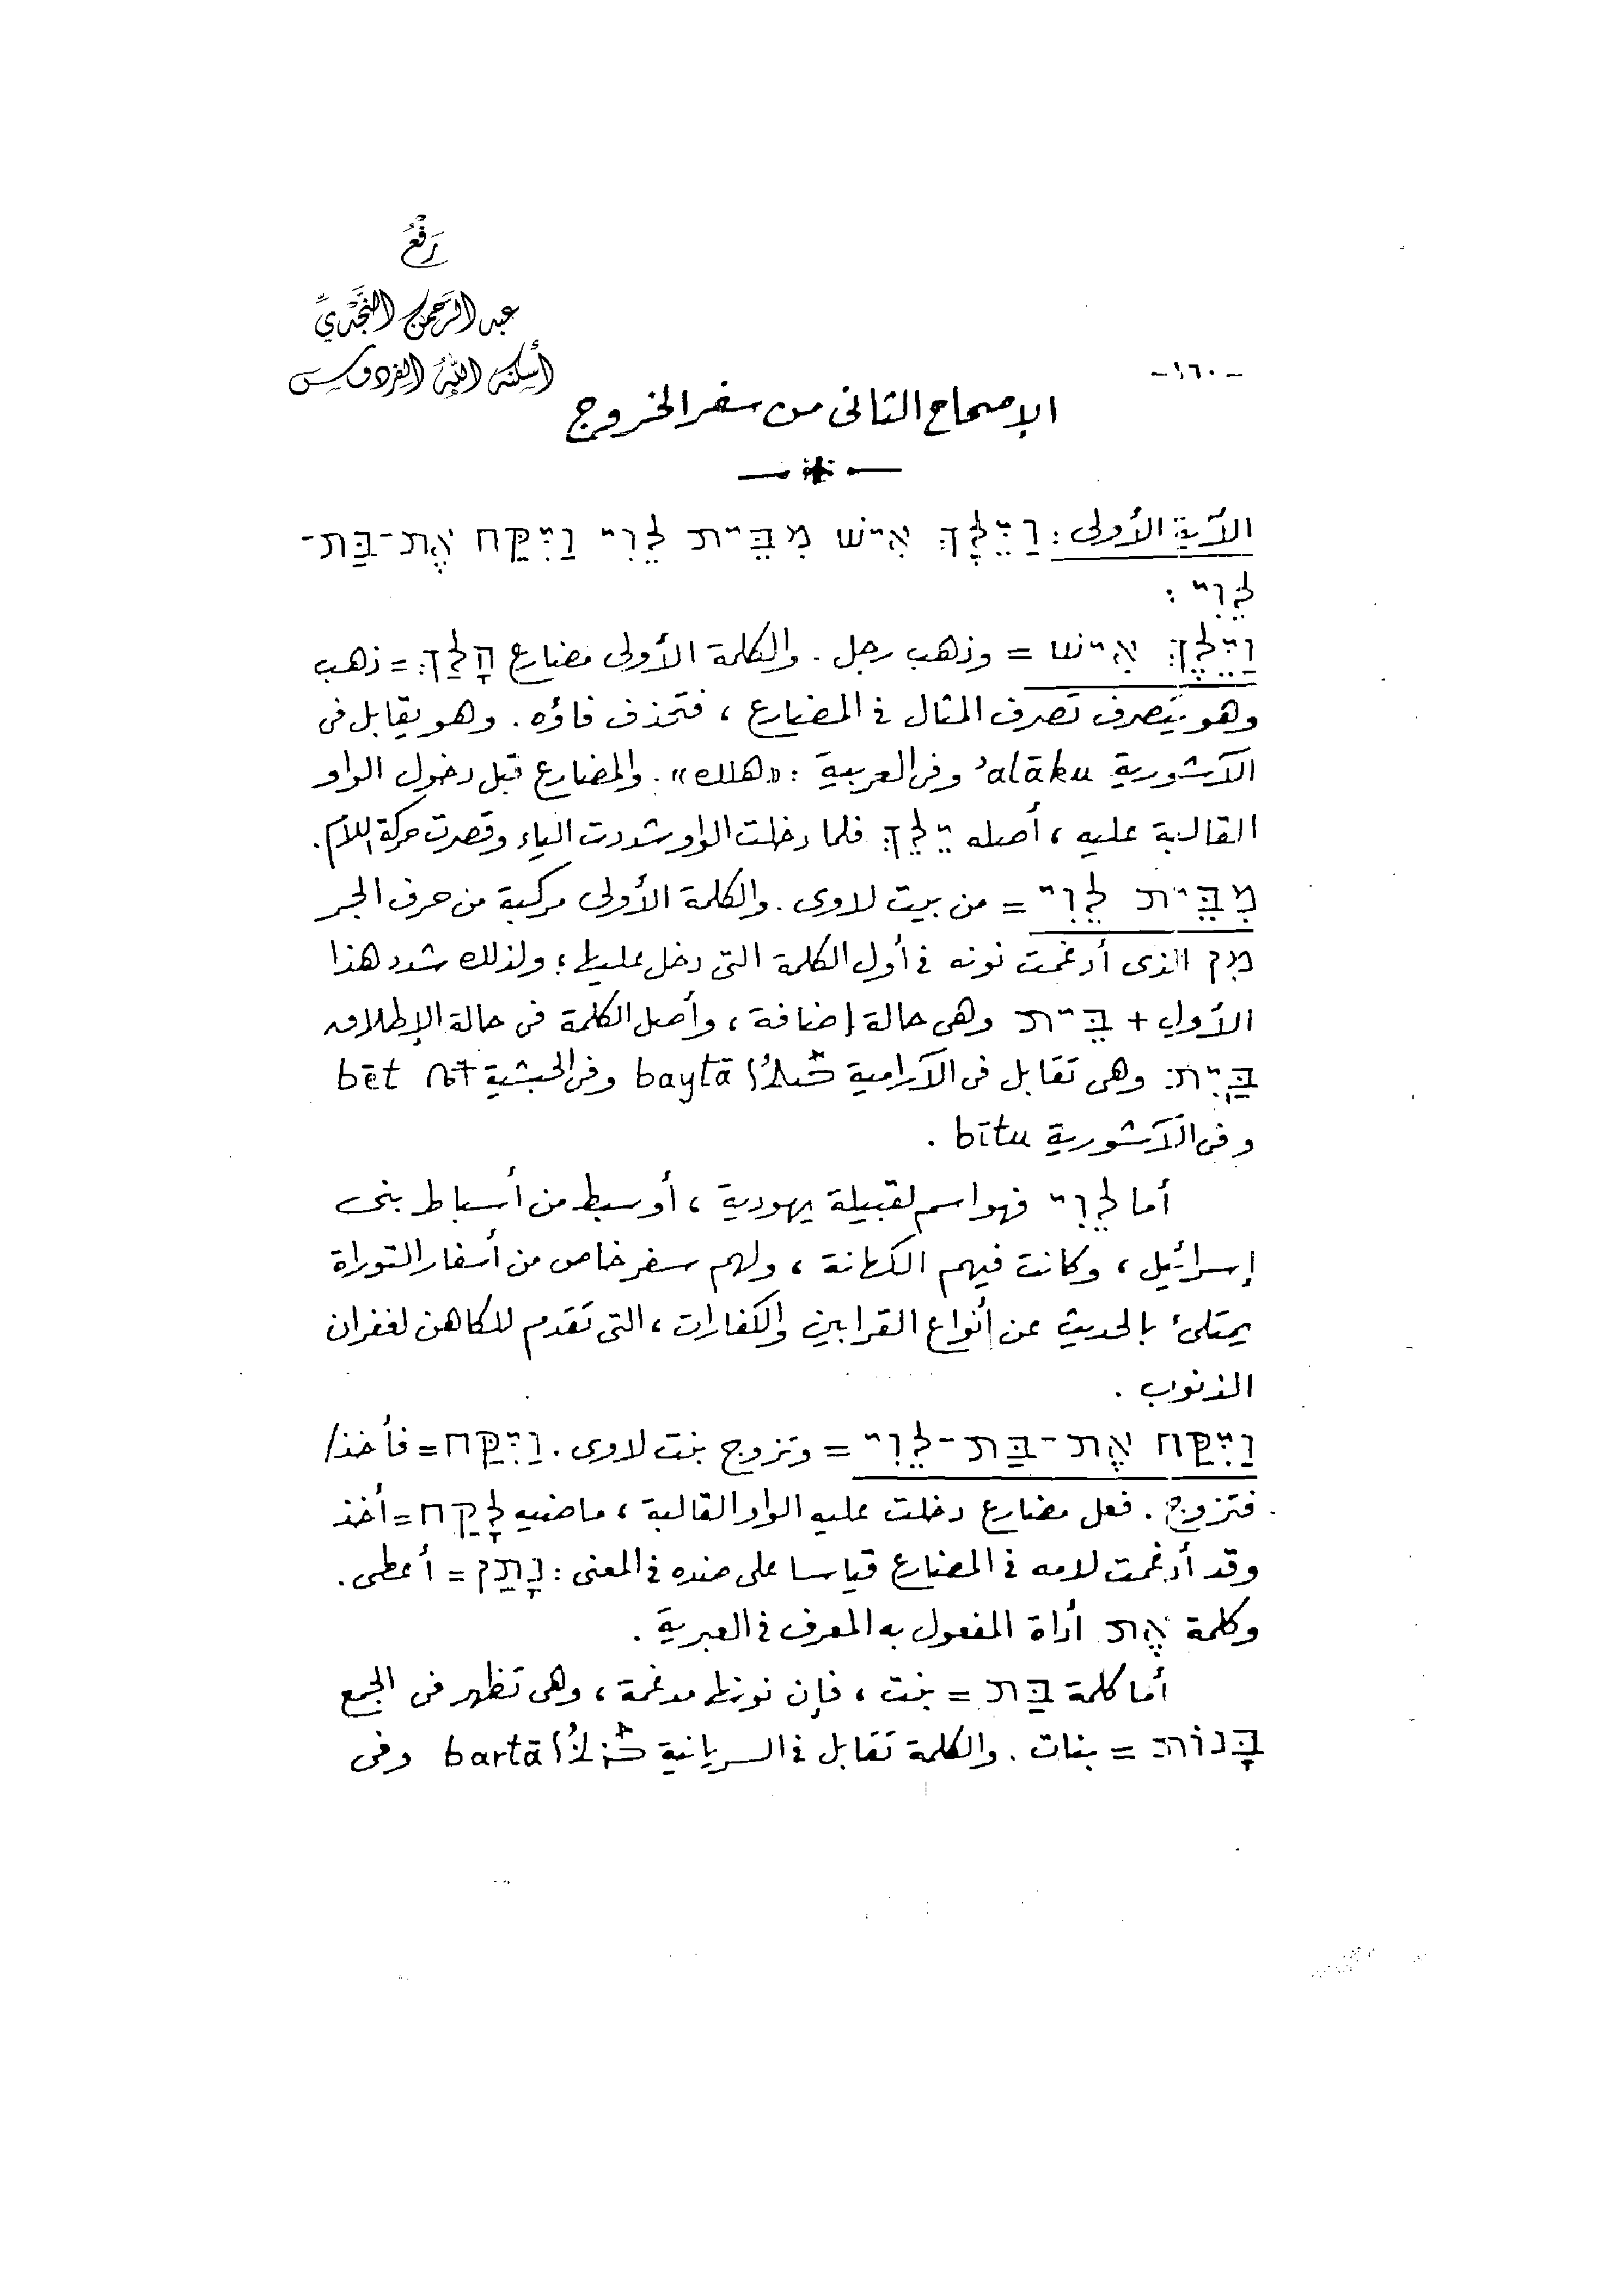 رَفْعُ
عبد الرَّحمن النَّجْديِّ
أسكنه اللهُ الفردوس
-١٦٠-
الإصحاح الثانى من سفر الخروج
الآية الأولى: וַיֵּלֶךְ אִישׁ מִבֵּית לֵוִי וַיִּקַּח אֶת־בַּת־
לֵוִי:
וַיֵּלֶךְ אִישׁ = وذهب رجل. والكلمة الأولى مضارع הָלַךְ = ذهب
وهو يتصرف تصرف المثال فى المضارع، فتحذف فاؤه. وهو يقابل فى
الآشورية ʾalāku وفى العربية: «هلك». والمضارع قبل دخول الواو
القالبة عليه، أصله יֵלֵךְ فلما دخلت الواو شددت الياء وقصرت حركة اللام.
מִבֵּית לֵוִי = من بيت لاوى. والكلمة الأولى مركبة من حرف الجر
מִן الذى أدغمت نونه فى أول الكلمة التى دخل عليها؛ ولذلك شدد هذا
الأول + בֵּית وهى حالة إضافة، وأصل الكلمة فى حالة الإطلاق
בַּיִת: وهى تقابل فى الآرامية ܒܰܝܬܳܐ baytā وفى الحبشية ቤት bēt
وفى الآشورية bītu.
أما לֵוִי فهو اسم لقبيلة يهودية، أو سبط من أسباط بنى
إسرائيل، وكانت فيهم الكهانة، ولهم سفر خاص من أسفار التوراة
يمتلئ بالحديث عن أنواع القرابين والكفارات، التى تقدم للكاهن لغفران
الذنوب.
וַיִּקַּח אֶת־בַּת־לֵוִי = وتزوج بنت لاوى. וַיִּקַּח = فأخذ/
فتزوج. فعل مضارع دخلت عليه الواو القالبة، ماضيه לָקַח = أخذ
وقد أدغمت لامه فى المضارع قياسا على ضده فى المعنى: נָתַן = أعطى.
وكلمة אֶת أداة المفعول به المعرف فى العبرية.
أما كلمة בַּת = بنت، فإن نونها مدغمة، وهى تظهر فى الجمع
בָּנוֹת = بنات. والكلمة تقابل فى السريانية ܒܰܪܬܳܐ bartā وفى